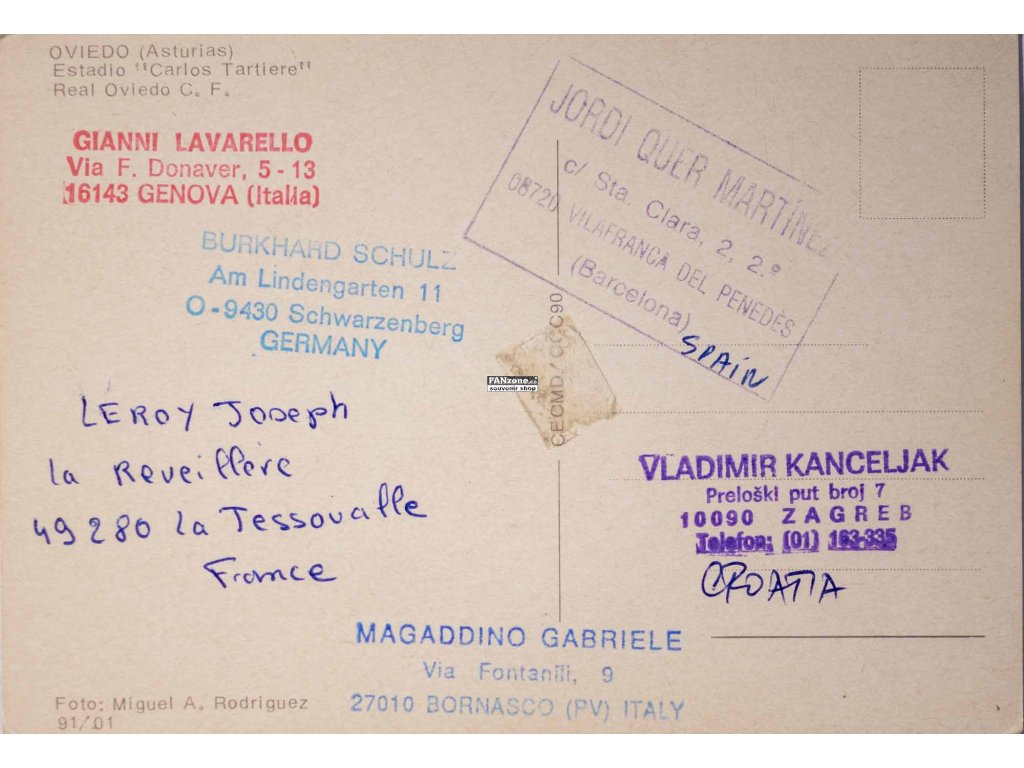 OVIEDO (Asturias)
Estadio "Carlos Tartiere"
Real Oviedo C. F.
GIANNI LAVARELLO
Via F. Donaver, 5 - 13
16143 GENOVA (Italia)
JORDI QUER MARTÍNEZ
c/ Sta. Clara, 2, 2.º
08720 VILAFRANCA DEL PENEDÈS
(Barcelona)
SPAIN
BURKHARD SCHULZ
Am Lindengarten 11
O-9430 Schwarzenberg
GERMANY
CECMD/CCC90
FANzone.cz
souvenir shop
LEROY Joseph
la Reveillère
49280 la Tessoualle
France
VLADIMIR KANCELJAK
Preloški put broj 7
10090 ZAGREB
Telefon: (01) 163-335
CROATIA
MAGADDINO GABRIELE
Via Fontanili, 9
27010 BORNASCO (PV) ITALY
Foto: Miguel A. Rodriguez
91/01